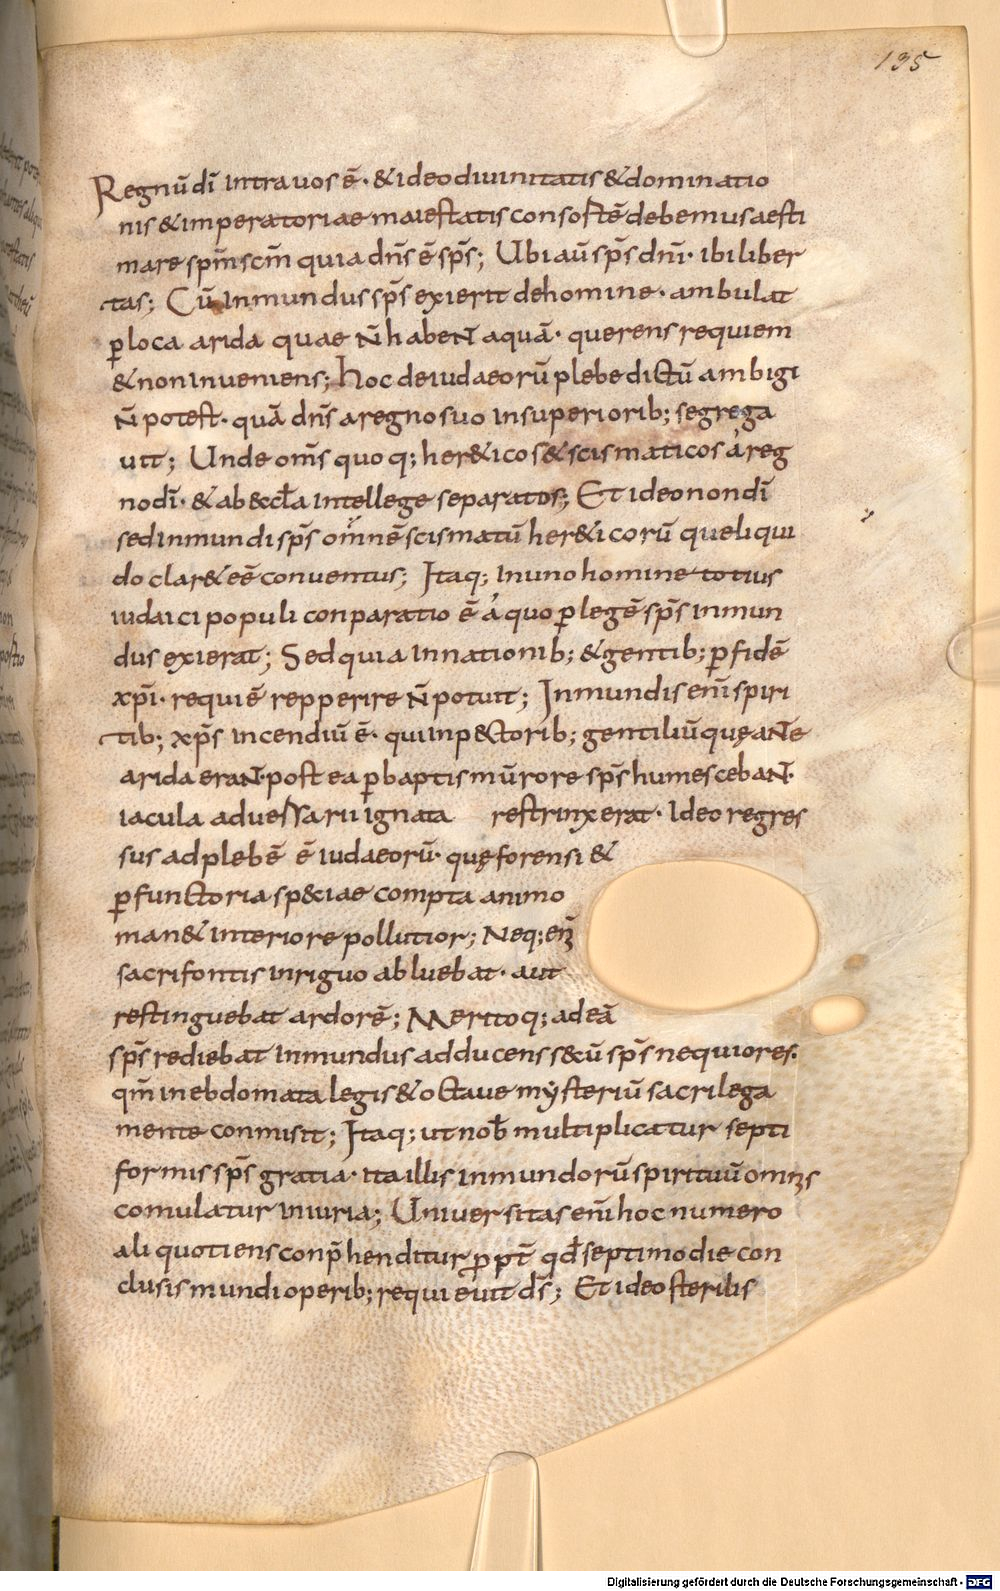 135
Regnū dī intra uos ē· & ideo diuinitatis & dominatio
nis & imperatoriae maiestatis consortē debemus aesti
mare spm̄ scm̄ quia dns̄ ē sps̄; Ubi aū sps̄ dnī· ibi liber
tas; Cū inmundus sps̄ exierit de homine· ambulat
ꝑ loca arida quae n̄ habent aquā· querens requiem
& non inueniens; Hoc de iudaeorū plebe dictū ambigi
n̄ potest· quā dns̄ a regno suo in superiorib; segrega
uit; Unde oms̄ quoq; her&icos & scismaticos á reg
no dī· & ab eccl̄a intellege separatos; Et ideo non dī
sed inmundi sps̄ omnē scismatū her&icorū que liqui
do clar& eē conuentus; Itaq; in uno homine totius
iudaici populi conparatio ē á quo ꝑ legē sps̄ inmun
dus exierat; Sed quia in nationib; & gentib; ꝑ fidē
xp̄i· requiē repperire n̄ potuit; Inmundis enī spiri
tib; xp̄s incendiū ē· qui in pectorib; gentiliū quę ante
arida erant· post ea ꝑ baptismū rore sps̄ humescebant·
iacula aduersarii ignata restrinxerat· Ideo regres
sus ad plebē ē iudaeorū· quę forensi &
ꝑfunctoria sp&iae compta animo
man& interiore pollutior; Neq; enī
sacri fontis inriguo abluebat· aut
restinguebat ardorē; Meritoq; ad eā
sps̄ rediebat inmundus adducens secū sps̄ nequiores·
qm̄ in ebdomata legis & octaue mẏsteriū sacrilega
mente conmisit; Itaq; ut nob̄ multiplicatur septi
formis sps̄ gratia· ita illis inmundorū spirituū omīs
comulatur iniuria; Uniuersitas enī hoc numero
aliquotiens conp̄henditur ꝓpt̄ qd̄ septimo die con
clusis mundi operib; requieuit ds̄; Et ideo sterilis
Digitalisierung gefördert durch die Deutsche Forschungsgemeinschaft - DFG